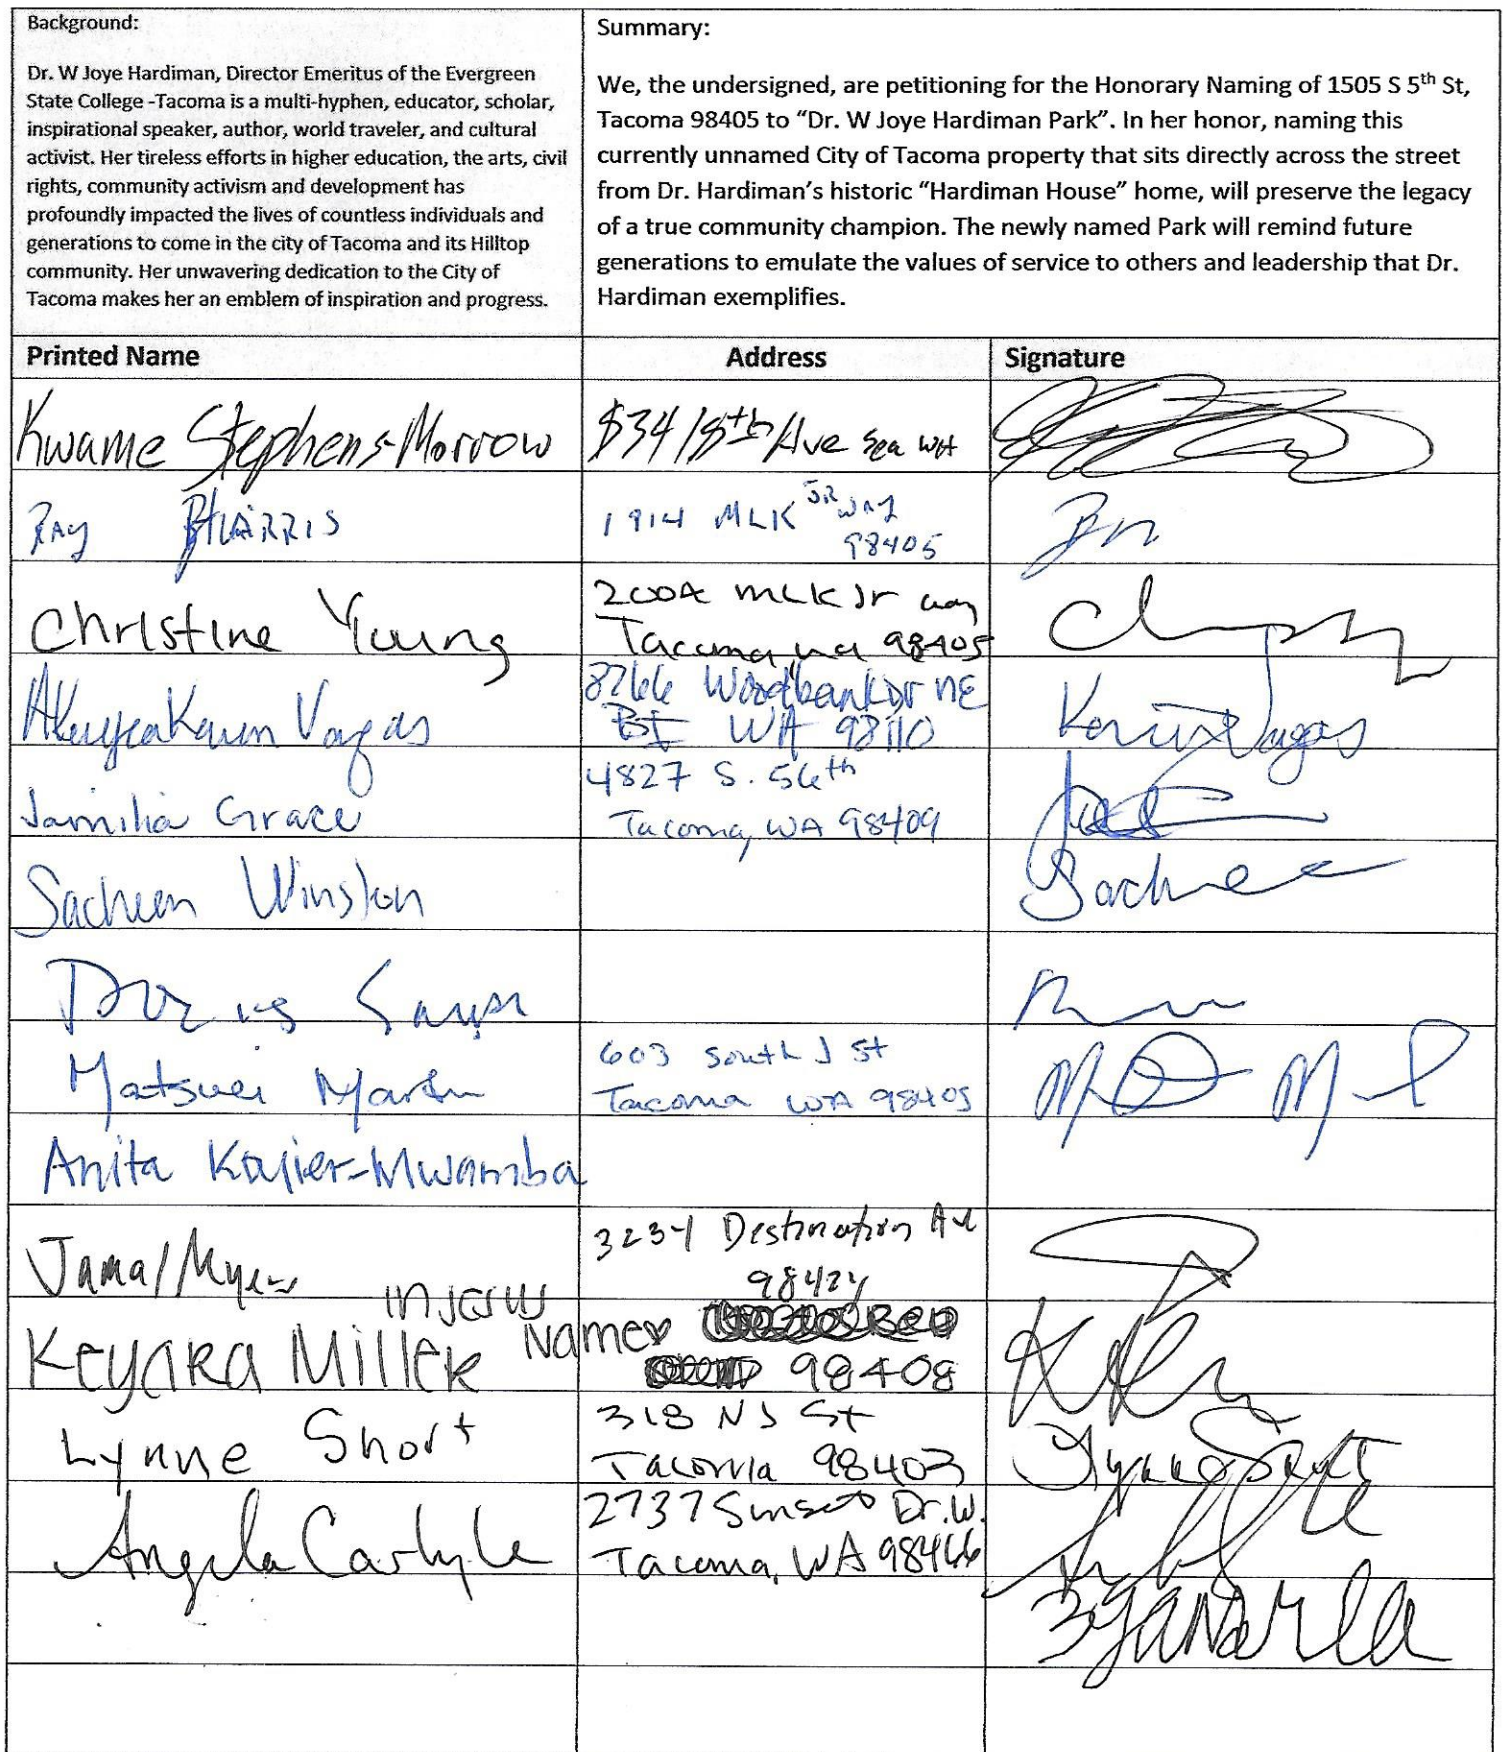 Background:
Dr. W Joye Hardiman, Director Emeritus of the Evergreen
State College -Tacoma is a multi-hyphen, educator, scholar,
inspirational speaker, author, world traveler, and cultural
activist. Her tireless efforts in higher education, the arts, civil
rights, community activism and development has
profoundly impacted the lives of countless individuals and
generations to come in the city of Tacoma and its Hilltop
community. Her unwavering dedication to the City of
Tacoma makes her an emblem of inspiration and progress.
Summary:
We, the undersigned, are petitioning for the Honorary Naming of 1505 S 5th St,
Tacoma 98405 to “Dr. W Joye Hardiman Park”. In her honor, naming this
currently unnamed City of Tacoma property that sits directly across the street
from Dr. Hardiman’s historic “Hardiman House” home, will preserve the legacy
of a true community champion. The newly named Park will remind future
generations to emulate the values of service to others and leadership that Dr.
Hardiman exemplifies.
Printed Name Address Signature
Kwame Stephens-Morrow
18th Ave Sea WA
Ray HARRIS
1914 MLK JR WAY
98405
Christine Young
MLK Jr way
Tacoma, wa 98405
Vargas
Woodbank Dr NE
BI WA 98110
Karin Vargas
Jamilia Grace
4827 S. 56th
Tacoma, WA 98409
Sacheen Winston
Matsuei Martin
603 South J St
Tacoma WA 98405
Anita Kajier-Mwamba
Jamal Myers
Destination Ave
98424
IN JESUS
Name
Keyara Miller
98408
Lynne Short
318 N J St
Tacoma 98403
Lynne Short
Angela Carlyle
2737 Sunset Dr. W.
Tacoma, WA 98466